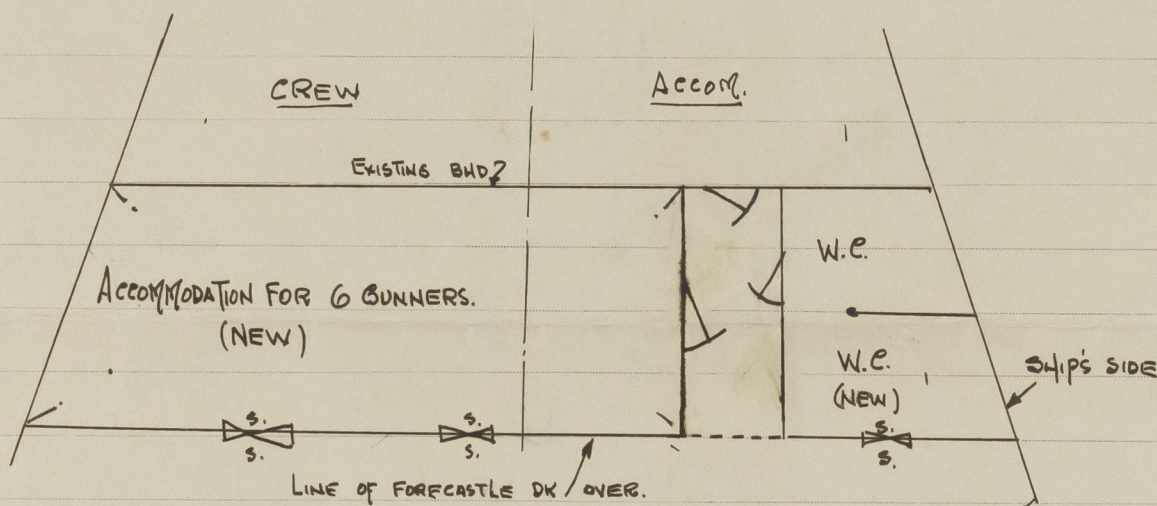 CREW
ACCOM.
EXISTING BHD
W.C.
ACCOMMODATION FOR 6 GUNNERS.
(NEW)
W.C.
(NEW)
SHIP'S SIDE
S.
S.
S.
S.
S.
S.
LINE OF FORECASTLE DK OVER.